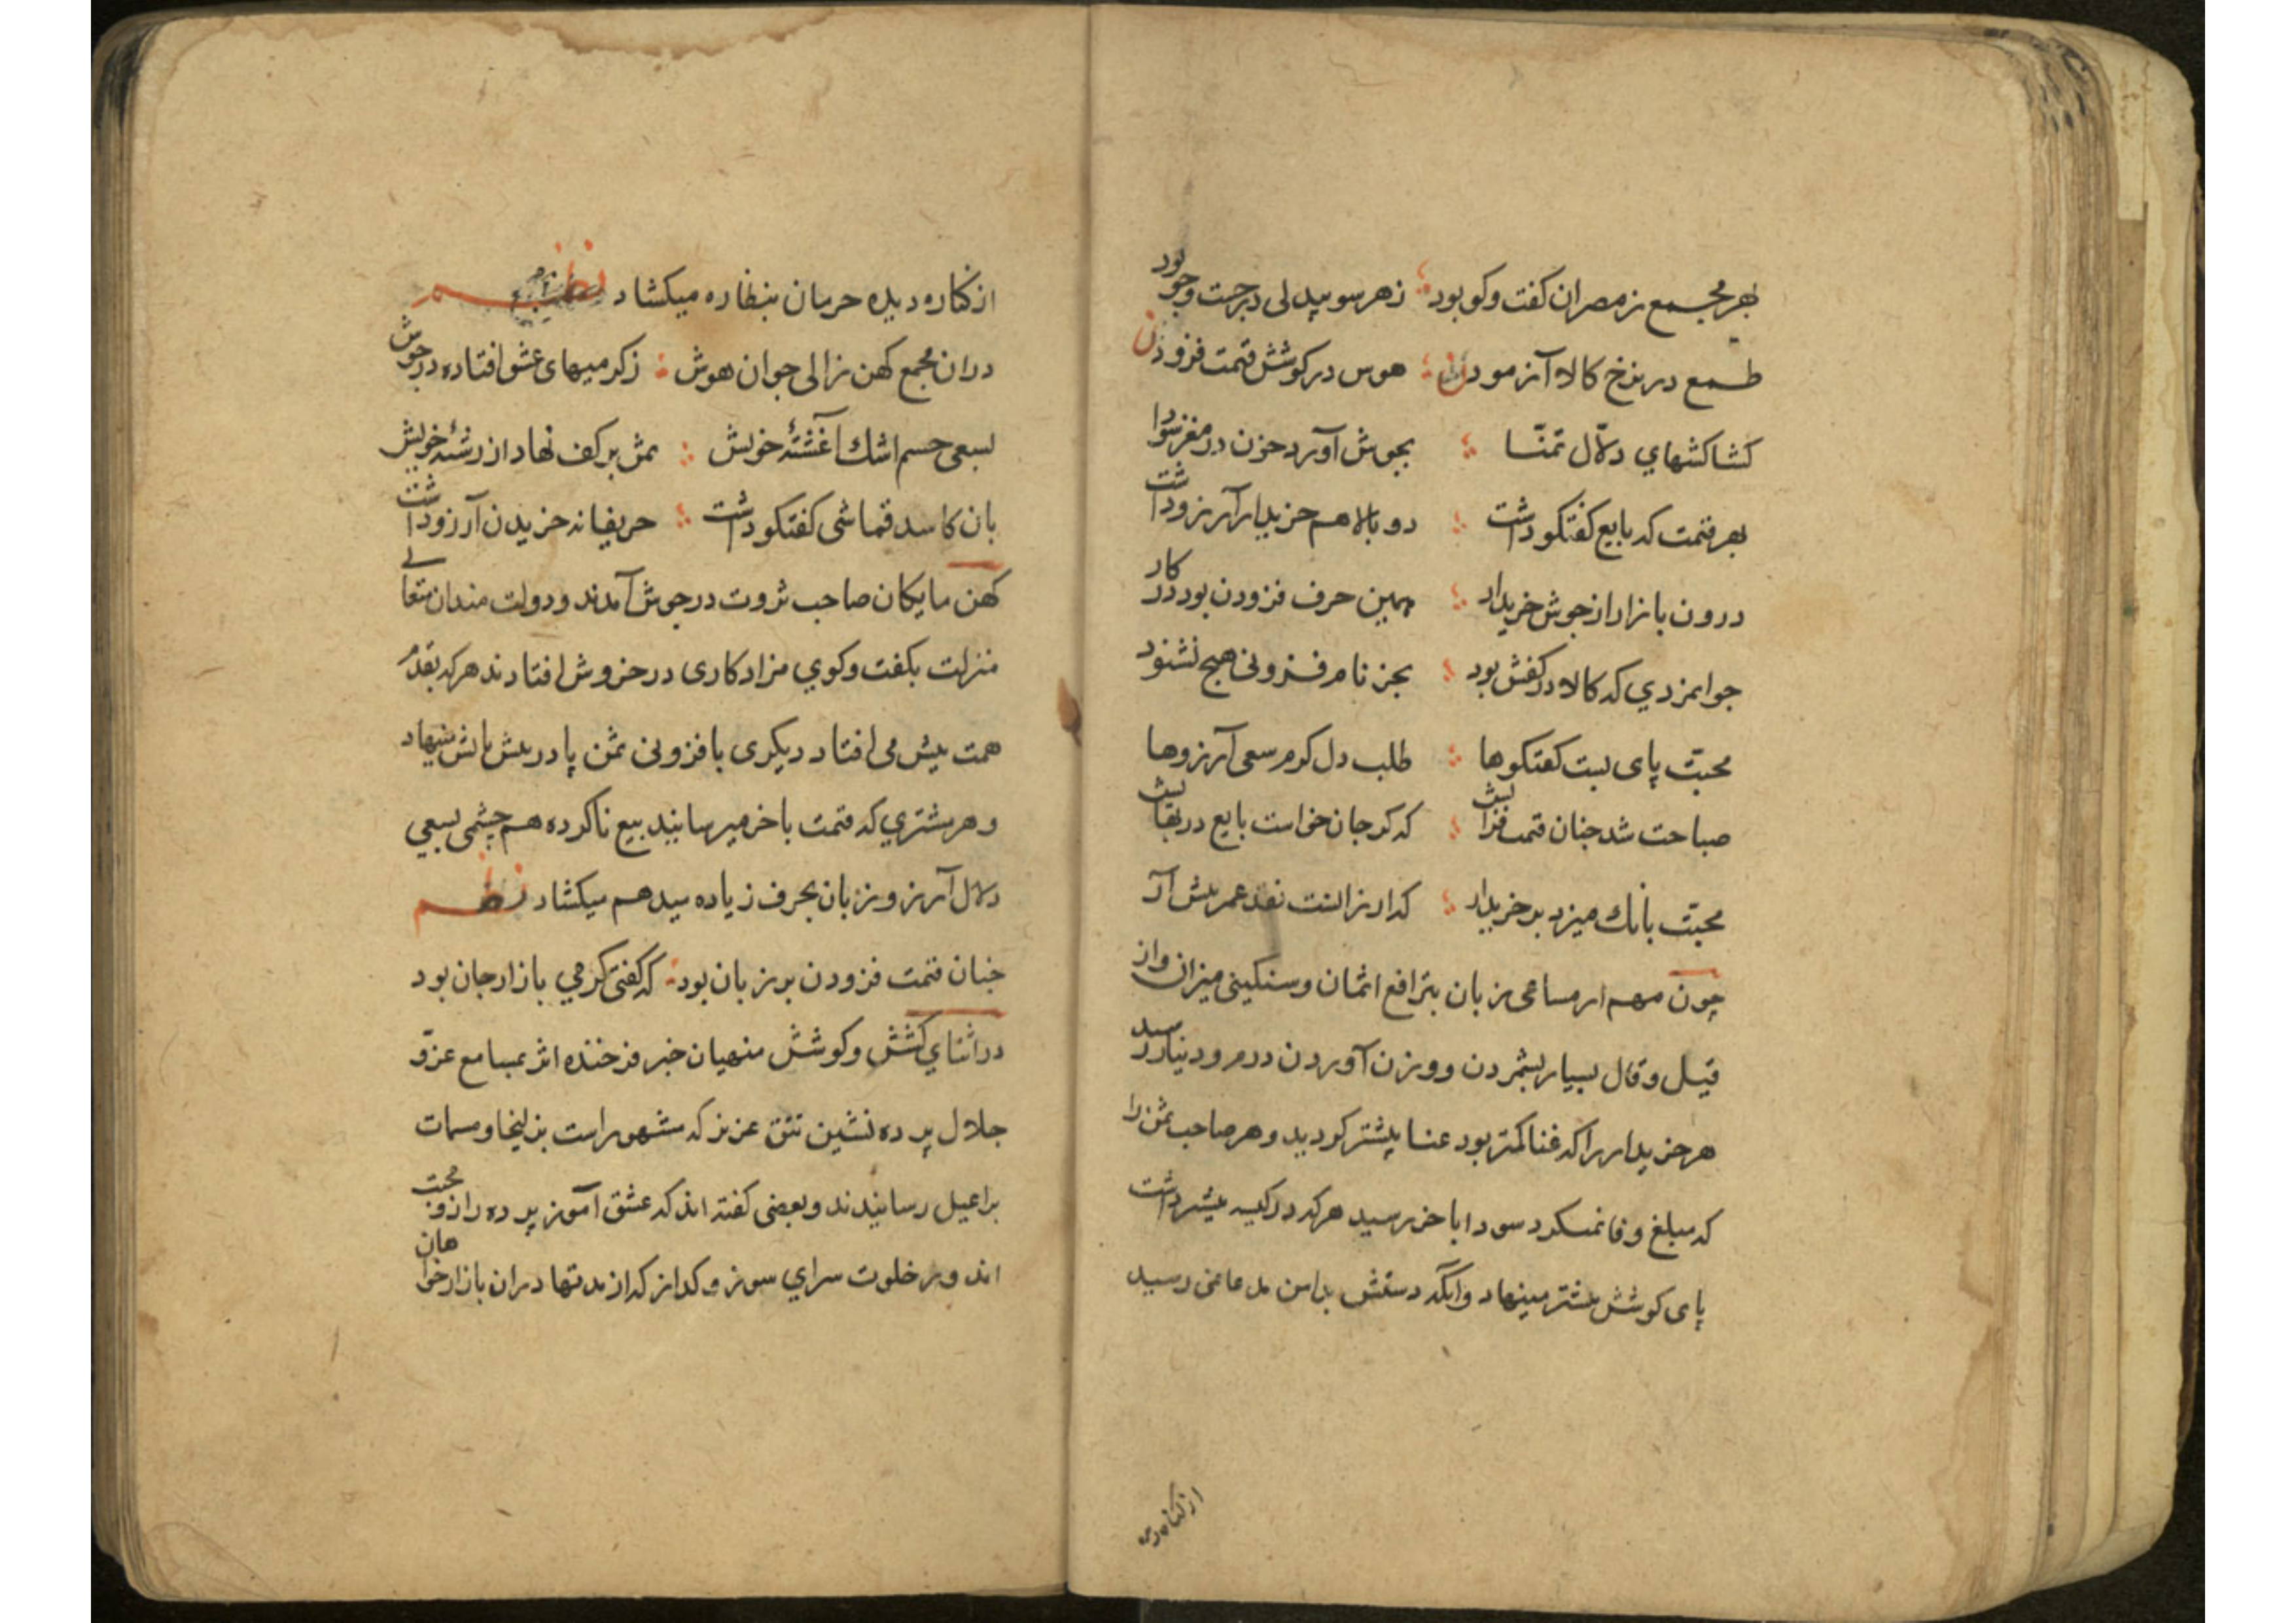 بهر مجمع ز مصران کفت وکو بود زهر سو بیدلی در جست وجو بود
طمع در نرخ کالا آزمودن هوس در کوشش قیمت فزودن
کشاکشهاي دلّال تمنّا بجوش آورد خون در مغز سودا
بهر قیمت که بایع کفتکو داشت دو بالا هم خریدار آرزو داشت
درون بازار از جوش خریدار همین حرف فزودن بود در کار
جوانمردي که کالا در کفش بود بجز نام فزونی هیچ نشنود
محبّت پای بست کفتکوها طلب دل کرم سعی آرزوها
صباحت شد جنان قیمت فزایش که کر جان خواست بایع در بقایش
محبّت بانك میزد بر خریدار که ارزانست نقد عمر پیش آر
چون مهم از مساعی زبان بترافع اثمان و سنکینی میزان و از
قیل و قال بسیار بشمردن و وزن آوردن درم و دینار رسید
هر خریدار را که غنا کمتر بود عنا پیشتر کردید و هر صاحب ثمن را
که مبلغ وفا نمیکرد سودا باخر رسید هر که در کیسه بیشتر داشت
پای کوشش پیشتر مینهاد و آنکه دستش بدامن مدعا نمی رسید
از کناره دی
از کناره دیده حرمان بنظاره میکشاد نظم
دران مجمع کهن زالی جوان هوش ز کرمیهای عشق افتاده در جوش
بسعی جسم اشك آغشتهٔ خویش ثمن بر کف نهاد از رشتهٔ خویش
بان کاسد قماشی کفتکو داشت حریفانه خریدن آرزو داشت
کهن مایکان صاحب ثروت در جوش آمدند و دولت مندان متعالی
منزلت بکفت وکوي مزاد کاری در خروش افتادند هر که بقدم
همت پیش می افتاد دیکری بافزونی ثمن پا در پیش پایش مینهاد
و هر مشتري که قیمت باخر میرسانید بیع ناکرده هم چشمی بسعي
دلال آرزو زبان بحرف زیاده میدهم میکشاد نظم
جنان قیمت فزودن بر زبان بود که کفتی کرمي بازار جان بود
در اثناي کشش و کوشش منهیان خبر فرخنده اثر بمسامع عزّو
جلال پرده نشین تتق عزیز که مشهور است بزلیخا و مسمات
براعیل رسانیدند و بعضی کفته اند که عشق آموز پرده راز و محبت
اند و در خلوت سراي سوز و کداز کدازند تنها دران بازار خواهان